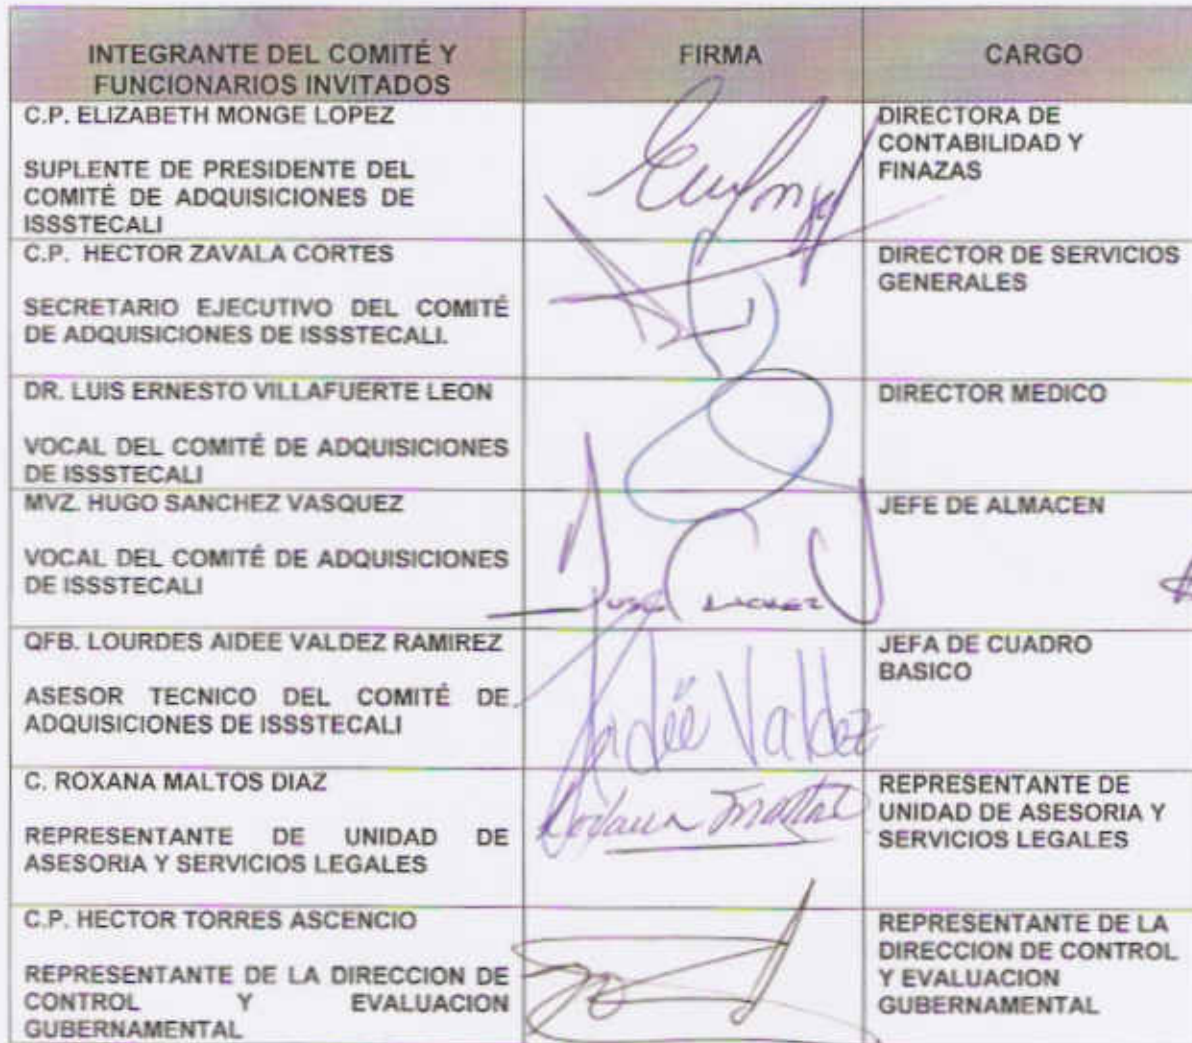 INTEGRANTE DEL COMITÉ Y
FUNCIONARIOS INVITADOS
FIRMA
CARGO
C.P. ELIZABETH MONGE LOPEZ
SUPLENTE DE PRESIDENTE DEL
COMITÉ DE ADQUISICIONES DE
ISSSTECALI
DIRECTORA DE
CONTABILIDAD Y
FINAZAS
C.P. HECTOR ZAVALA CORTES
SECRETARIO EJECUTIVO DEL COMITÉ
DE ADQUISICIONES DE ISSSTECALI.
DIRECTOR DE SERVICIOS
GENERALES
DR. LUIS ERNESTO VILLAFUERTE LEON
VOCAL DEL COMITÉ DE ADQUISICIONES
DE ISSSTECALI
DIRECTOR MEDICO
MVZ. HUGO SANCHEZ VASQUEZ
VOCAL DEL COMITÉ DE ADQUISICIONES
DE ISSSTECALI
JEFE DE ALMACEN
QFB. LOURDES AIDEE VALDEZ RAMIREZ
ASESOR TECNICO DEL COMITÉ DE
ADQUISICIONES DE ISSSTECALI
Valdez
JEFA DE CUADRO
BASICO
C. ROXANA MALTOS DIAZ
REPRESENTANTE DE UNIDAD DE
ASESORIA Y SERVICIOS LEGALES
REPRESENTANTE DE
UNIDAD DE ASESORIA Y
SERVICIOS LEGALES
C.P. HECTOR TORRES ASCENCIO
REPRESENTANTE DE LA DIRECCION DE
CONTROL Y EVALUACION
GUBERNAMENTAL
REPRESENTANTE DE LA
DIRECCION DE CONTROL
Y EVALUACION
GUBERNAMENTAL